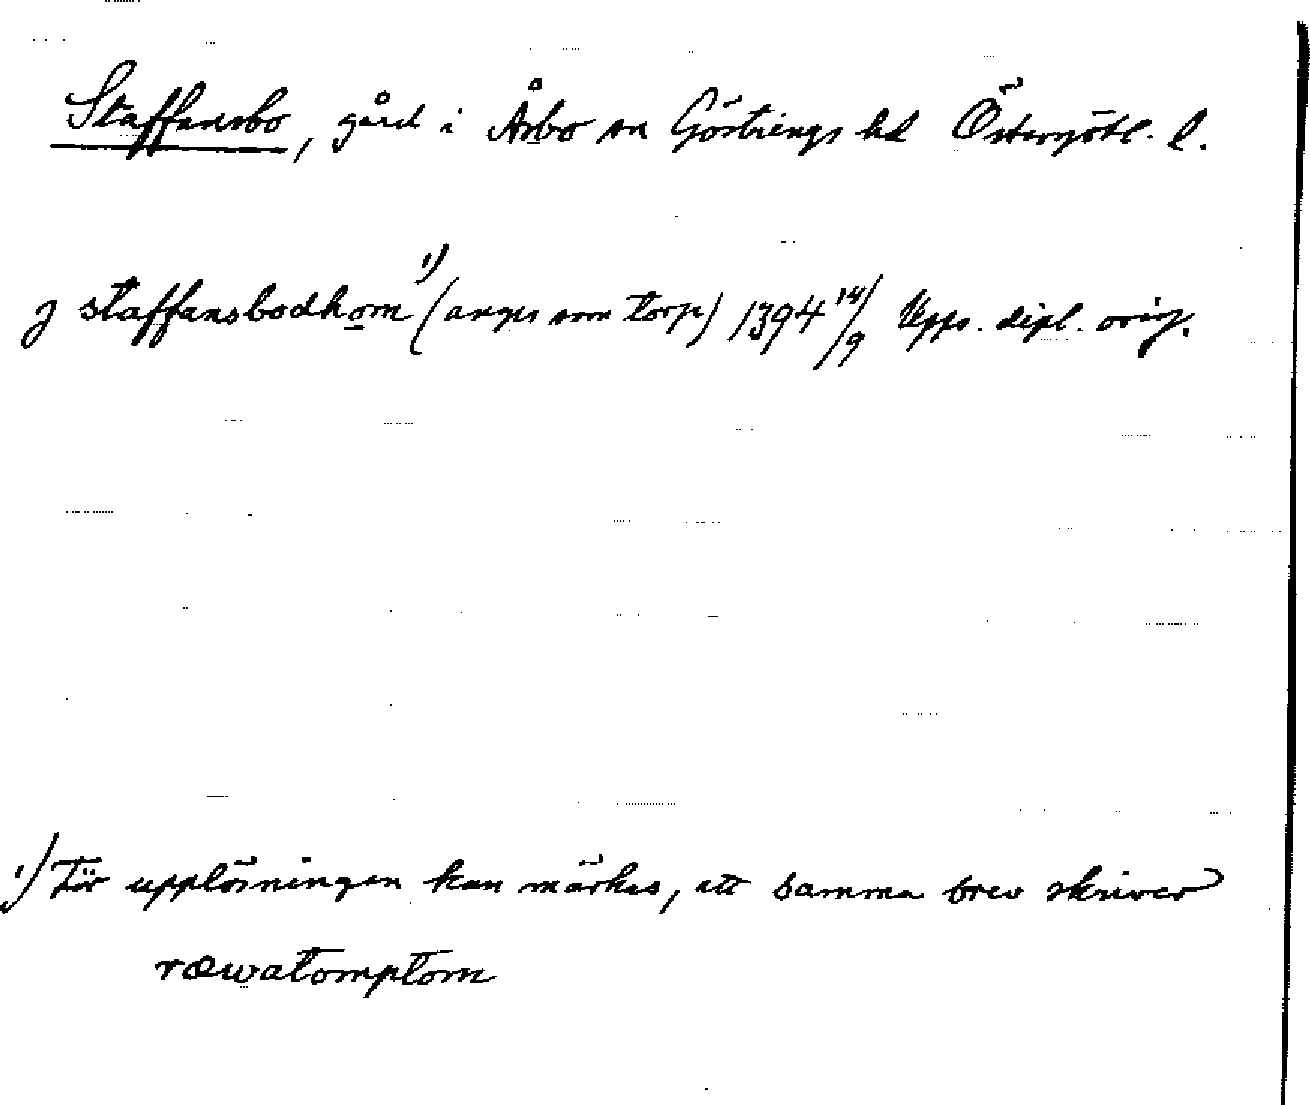 Staffansbo, gård i Åsbo sn Göstrings hd Östergötl. l.
j staffansbodhom ¹⁾ (anges som torp) 1394 14/9 Upps. dipl. orig.
¹⁾ För upplösningen kan märkas, att samma brev skriver
ræwatomptom